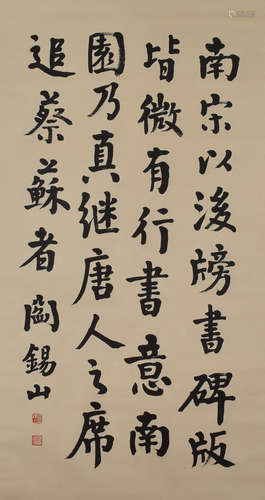 南宋以後牓書碑版
皆微有行書意南
園乃真继唐人之席
追蔡蘇者 閻錫山